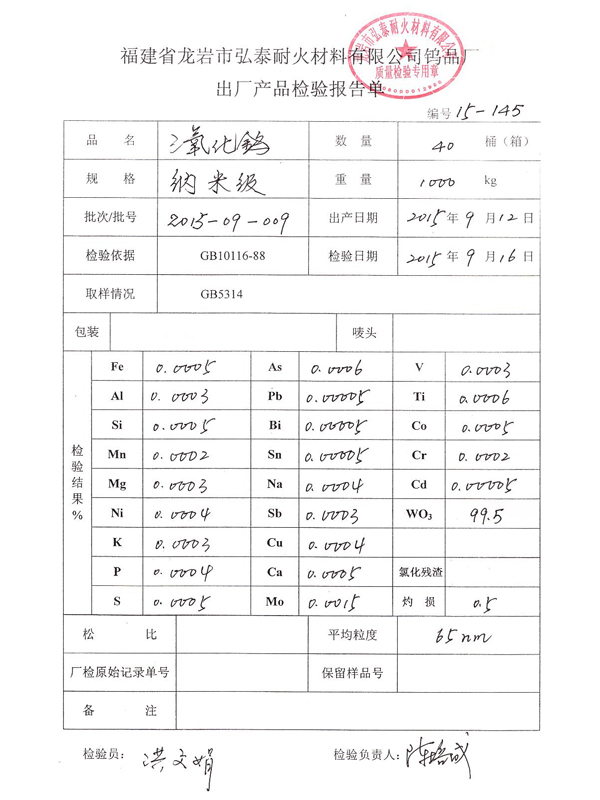 福建省龙岩市弘泰耐火材料有限公司钨品厂
质量检验专用章
出厂产品检验报告单
编号 15-145
品 名 氧化鎢 数 量 40 桶（箱）
规 格 纳米级 重 量 1000 kg
批次/批号 2015-09-009 出产日期 2015 年 9 月 12 日
检验依据 GB10116-88 检验日期 2015 年 9 月 16 日
取样情况 GB5314
包装 唛头
检验结果%
Fe 0.0005 As 0.0006 V 0.0003
Al 0.0003 Pb 0.00005 Ti 0.0006
Si 0.0005 Bi 0.00005 Co 0.0005
Mn 0.0002 Sn 0.00005 Cr 0.0002
Mg 0.0003 Na 0.0004 Cd 0.00005
Ni 0.0004 Sb 0.0003 WO₃ 99.5
K 0.0003 Cu 0.0004
P 0.0004 Ca 0.0005 氯化残渣
S 0.0005 Mo 0.0015 灼 损 0.5
松 比 平均粒度 65nm
厂检原始记录单号 保留样品号
备 注
检验员: 洪文娟 检验负责人: